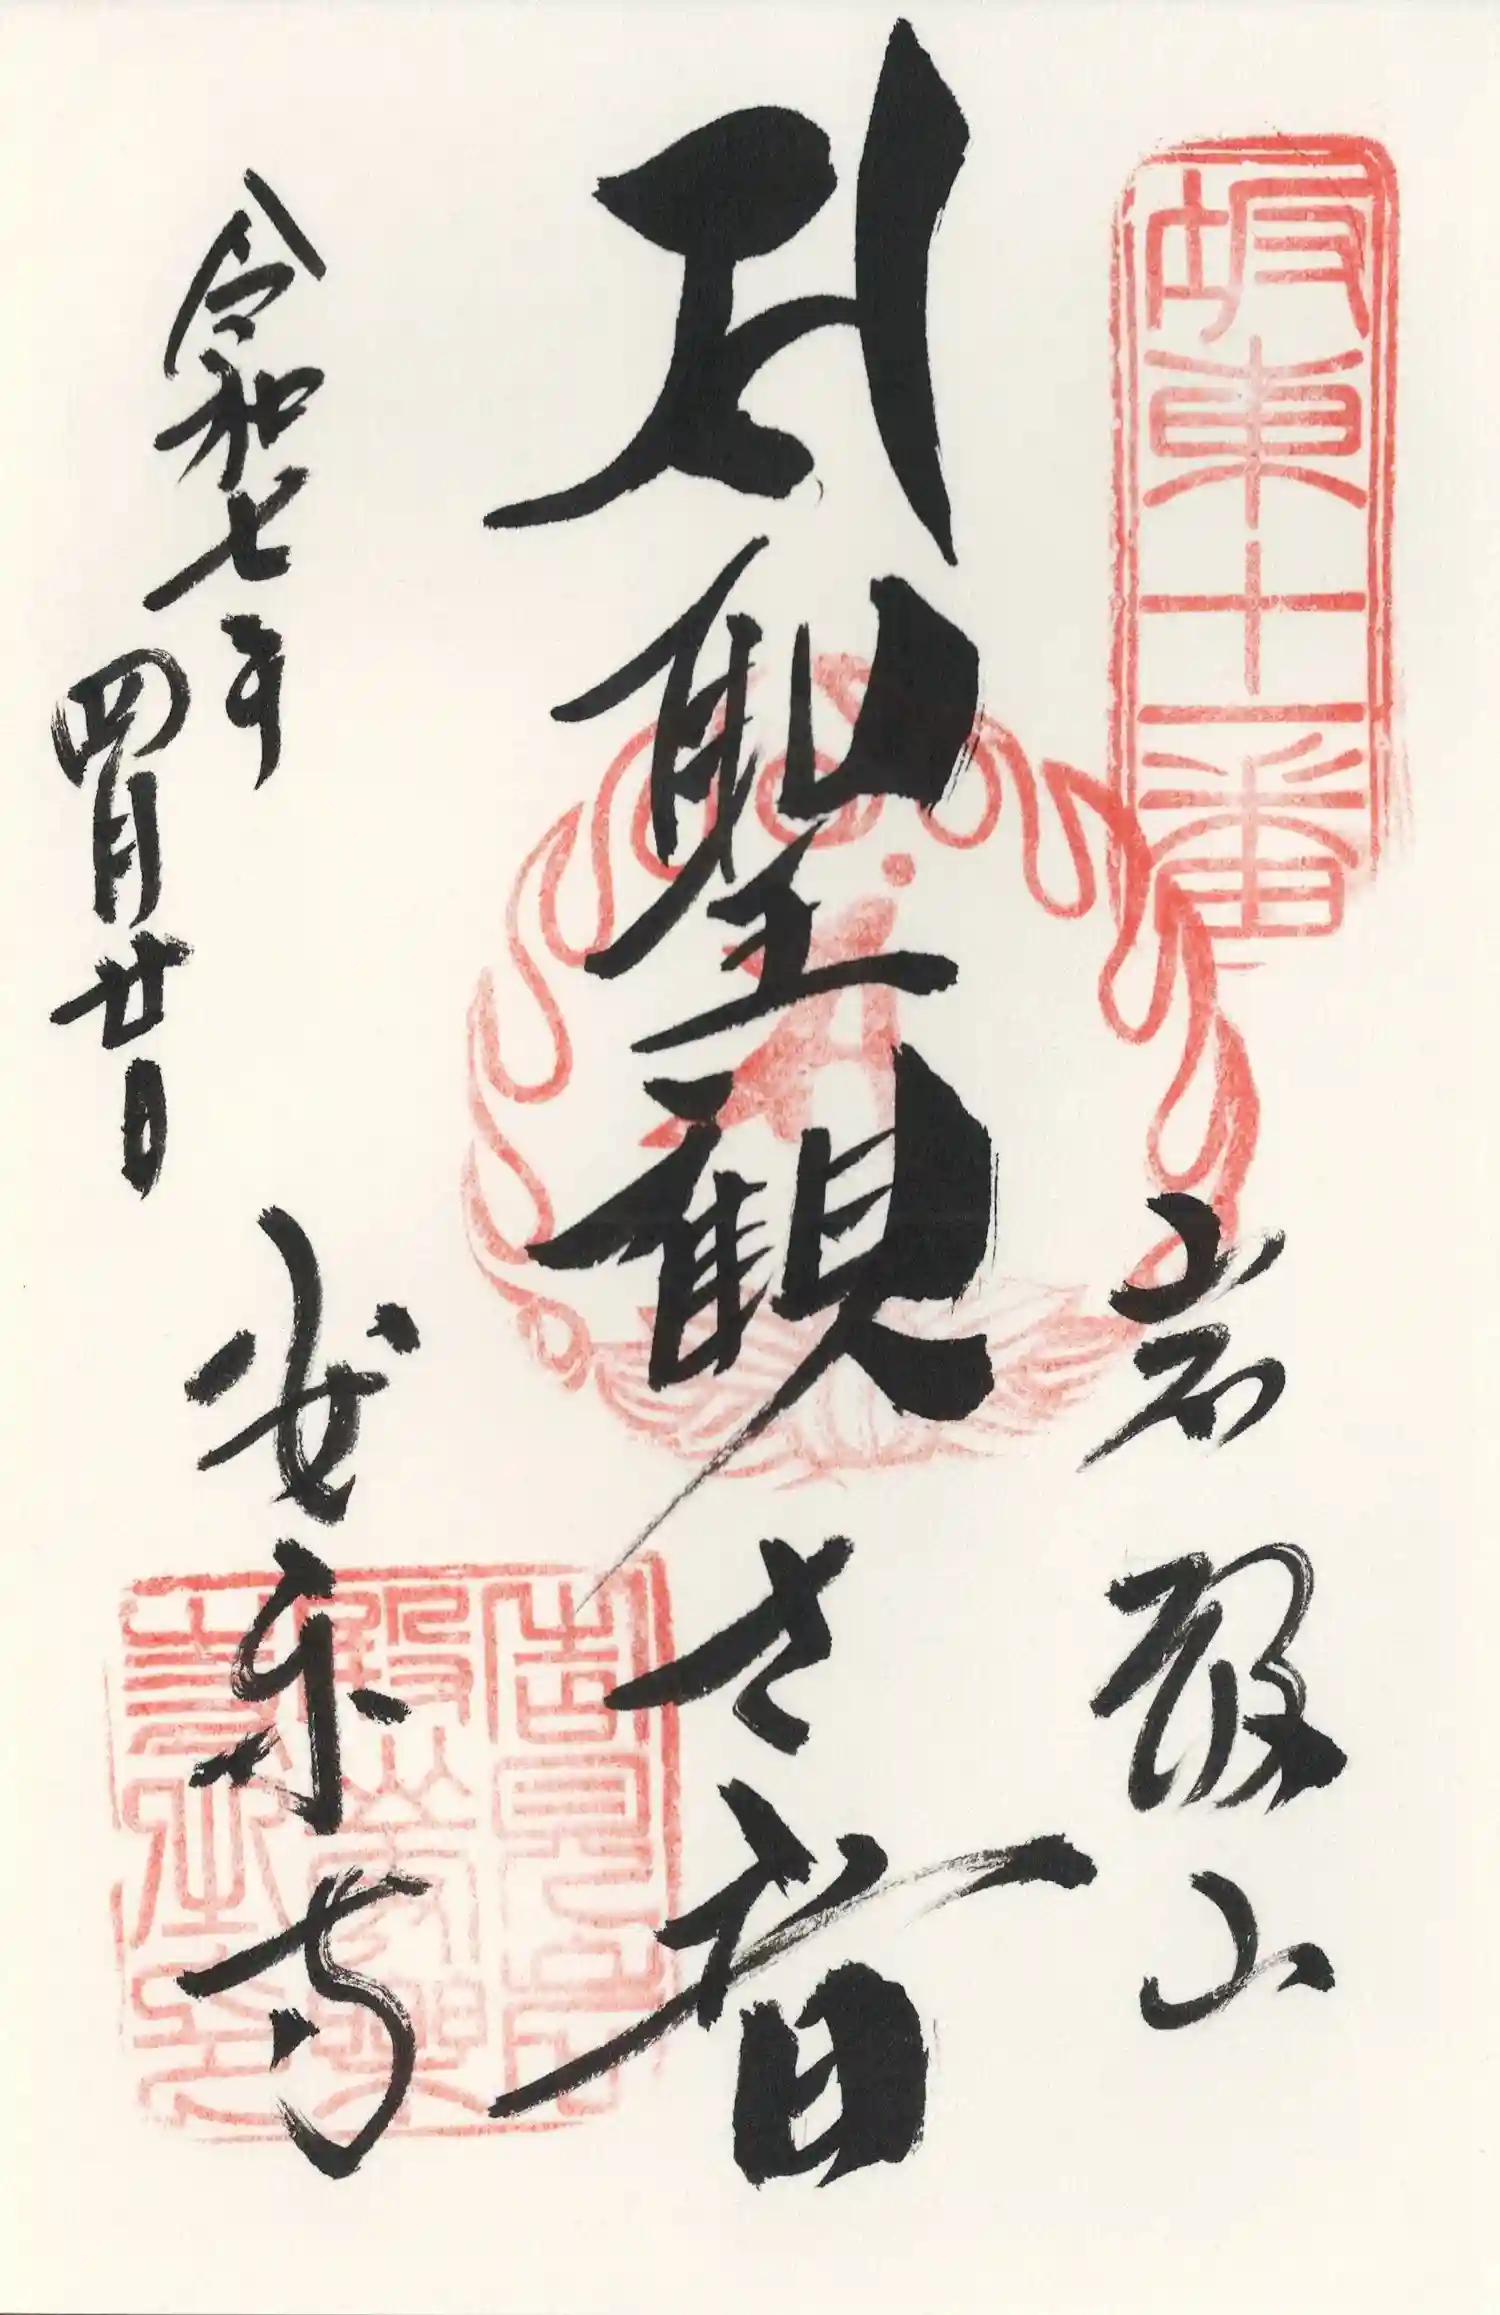 坂東十一番
岩殿山
聖観世音
令和七年
四月廿日
安楽寺